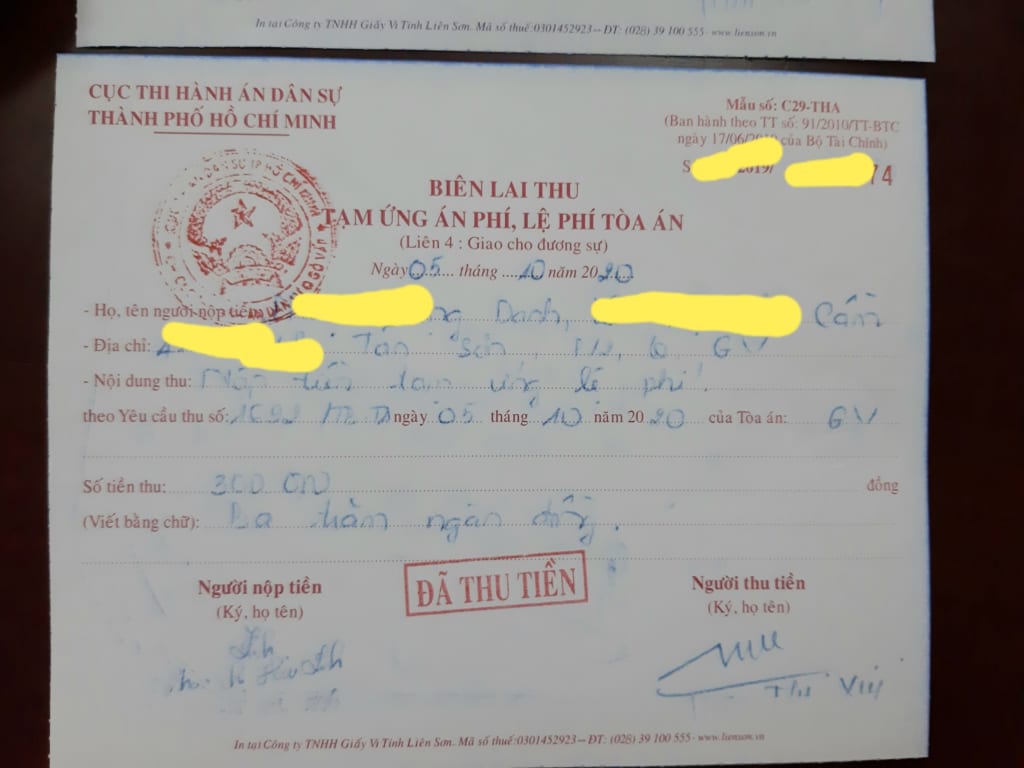 In tại Công ty TNHH Giấy Vi Tính Liên Sơn. Mã số thuế:0301452923 – ĐT: (028) 39 100 555 - www.lienson.vn
CỤC THI HÀNH ÁN DÂN SỰ
THÀNH PHỐ HỒ CHÍ MINH
Mẫu số: C29-THA
(Ban hành theo TT số: 91/2010/TT-BTC
ngày 17/06/2010 của Bộ Tài Chính)
S 2019/ 74
BIÊN LAI THU
TẠM ỨNG ÁN PHÍ, LỆ PHÍ TÒA ÁN
(Liên 4 : Giao cho đương sự)
Ngày 05 tháng 10 năm 2020
- Họ, tên người nộp tiền: Danh, Cần
- Địa chỉ: Tân Sơn, Q GV
- Nội dung thu: Nộp tiền tạm ứng lệ phí.
theo Yêu cầu thu số: ngày 05 tháng 10 năm 2020 của Tòa án: GV
Số tiền thu: 300 000 đồng
(Viết bằng chữ): Ba trăm ngàn đồng.
Người nộp tiền
(Ký, họ tên)
ĐÃ THU TIỀN
Người thu tiền
(Ký, họ tên)
In tại Công ty TNHH Giấy Vi Tính Liên Sơn. Mã số thuế:0301452923 – ĐT: (028) 39 100 555 - www.lienson.vn